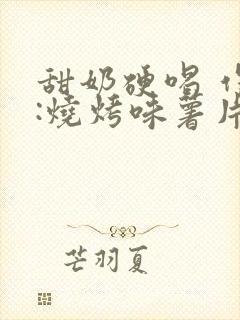 甜奶硬唱
:燒烤味薯片
芒羽夏